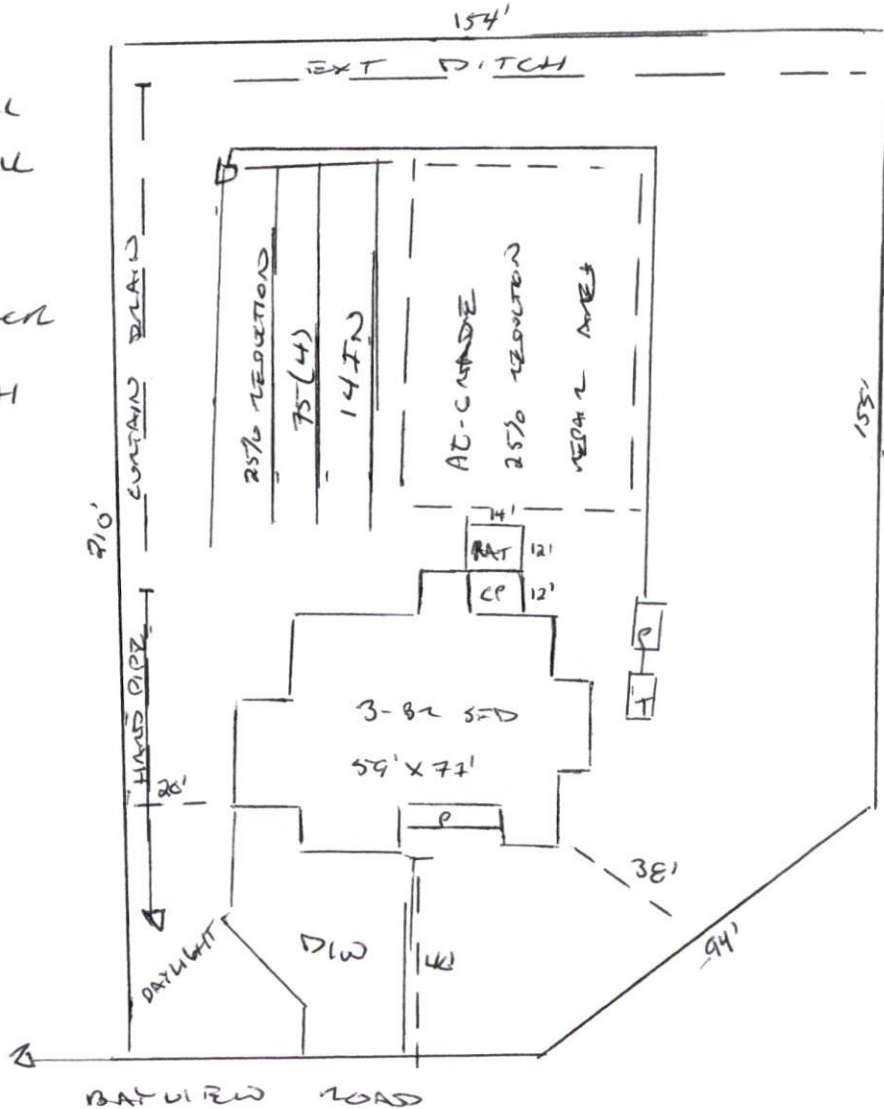 154'
EXT DITCH
CURTAIN DRAIN
210'
25% REDUCTION
75(4)
14 IN
AT-GRADE
25% REDUCTION
REPAIR AREA
155'
14'
PAT 12'
CP 12'
P
T
HARD PIPE
3-BR SFD
59' X 77'
20'
P
38'
94'
DAYLIGHT
D/W
BAYVIEW ROAD